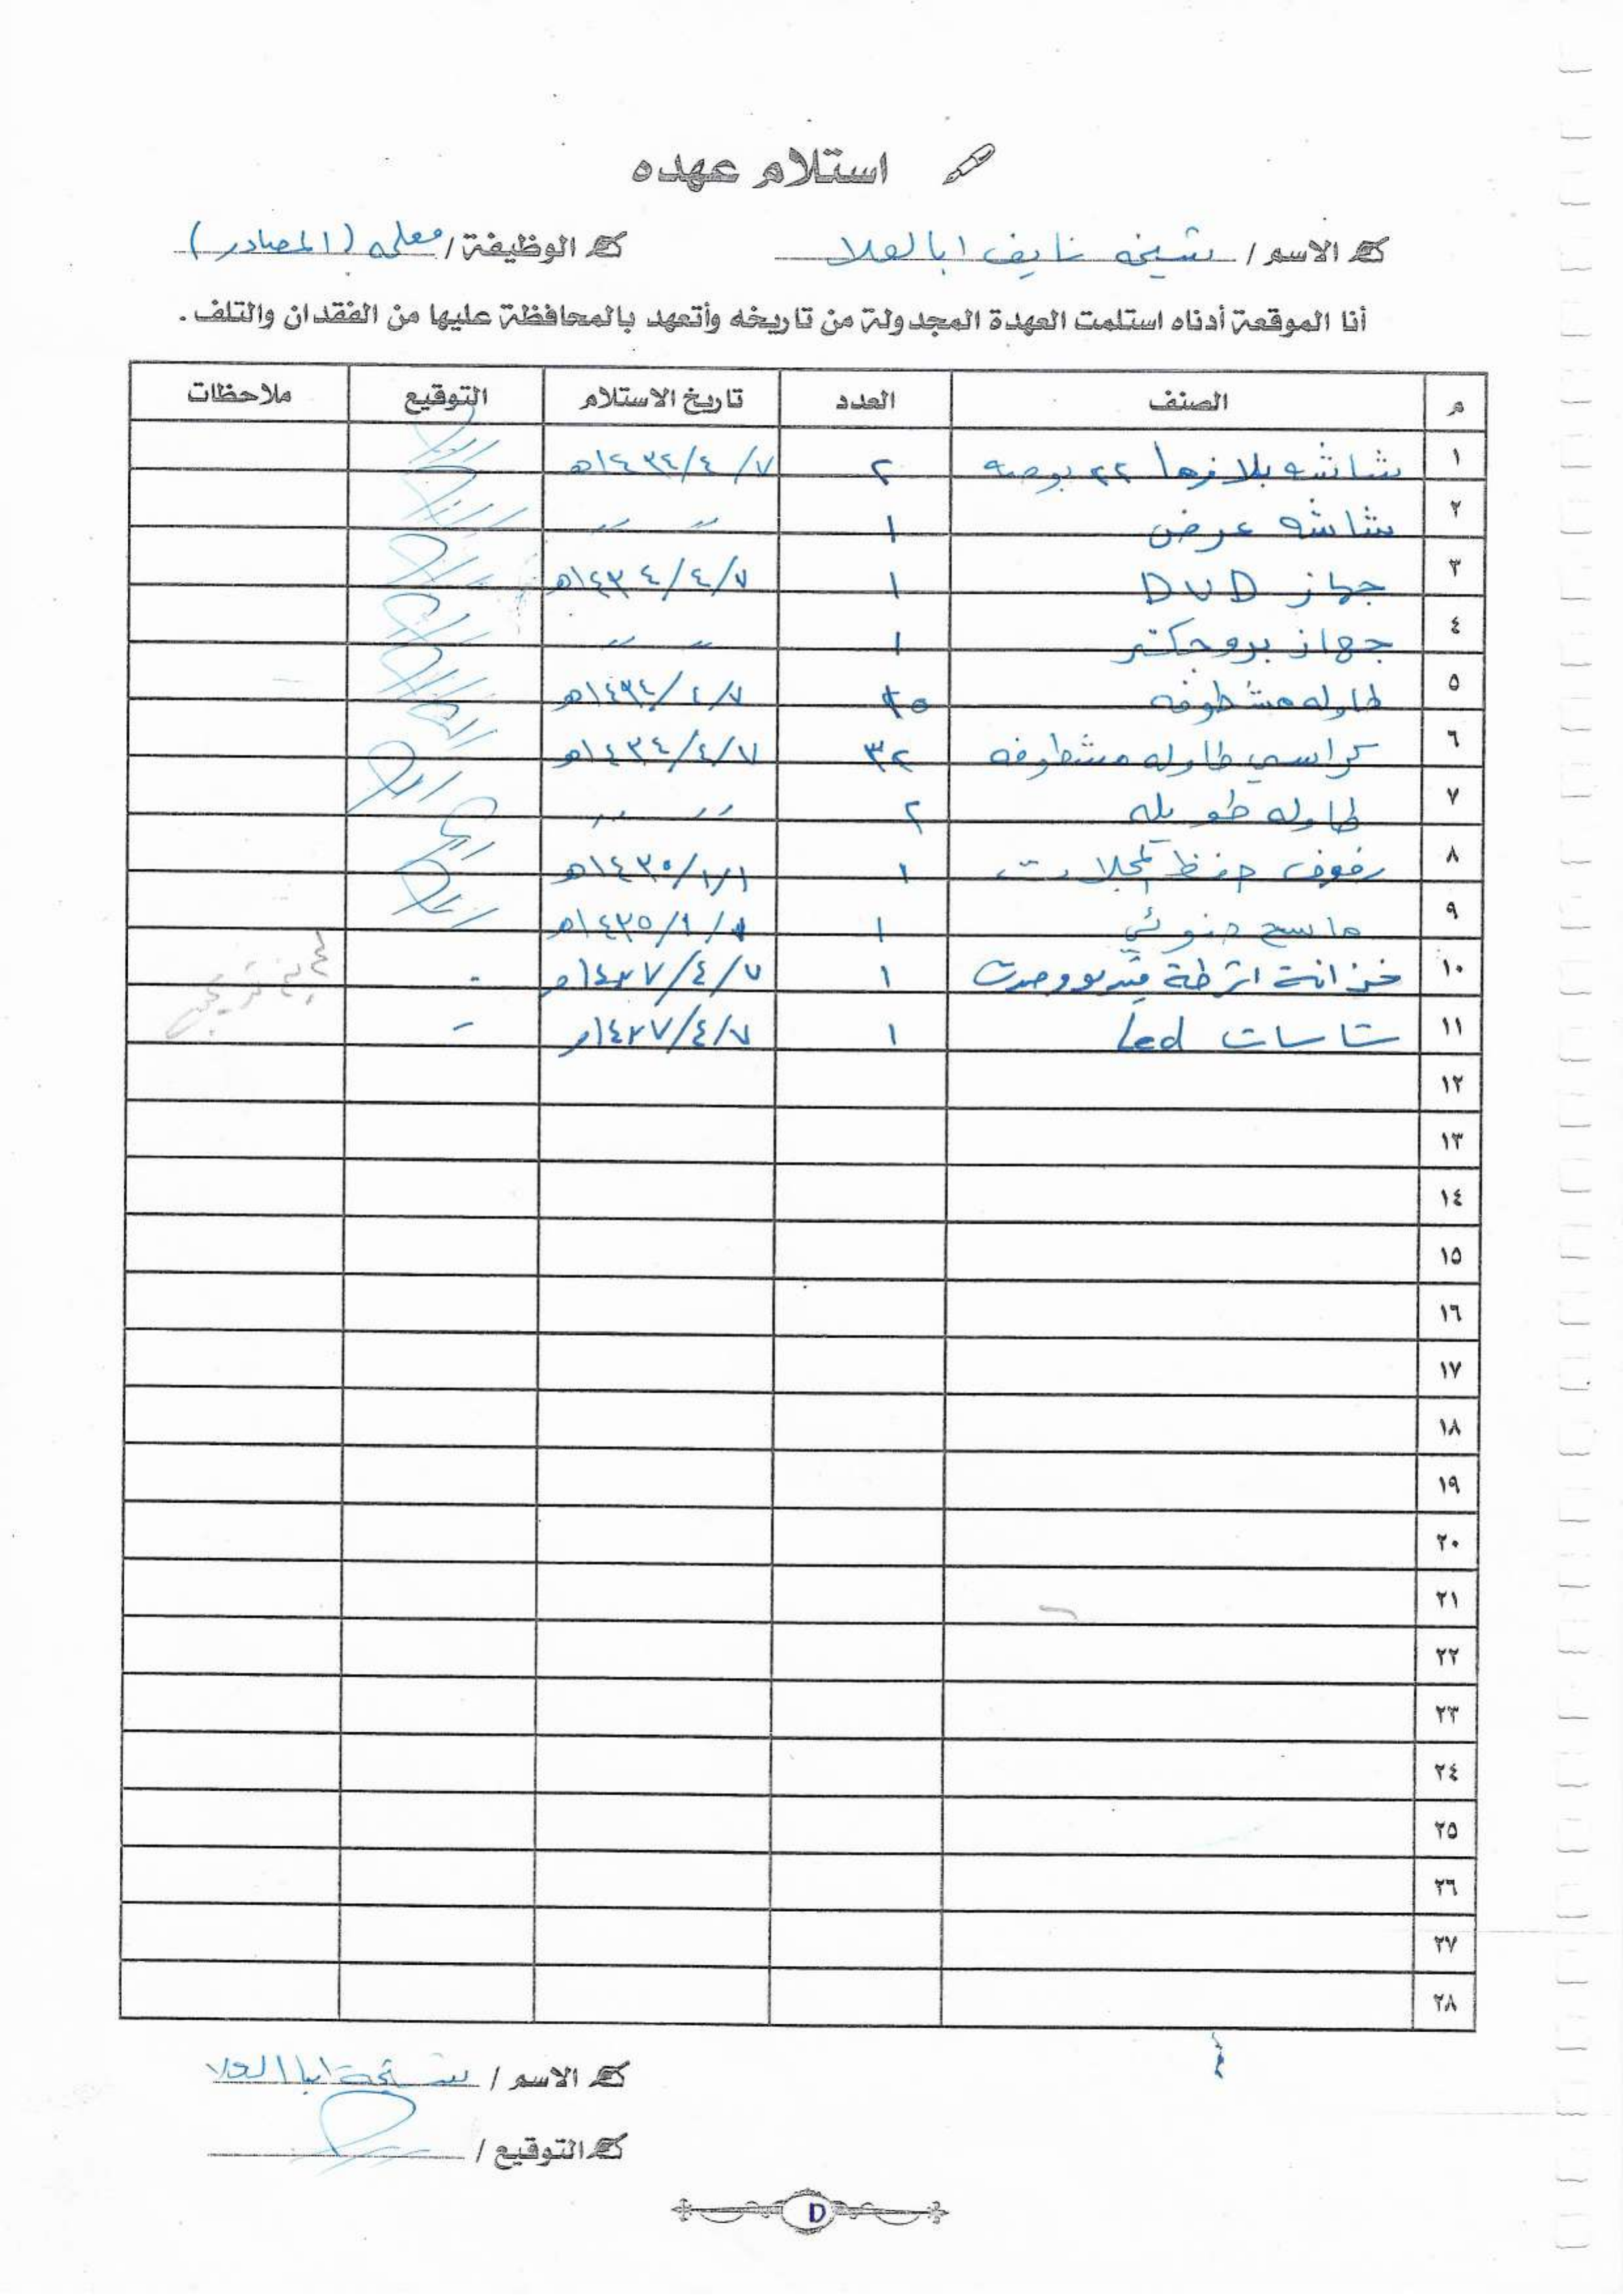 استلام عهده
الاسم / شيخه نايف ابالعلا الوظيفة / معلمه (المصادر)
أنا الموقعة أدناه استلمت العهدة المجدولة من تاريخه وأتعهد بالمحافظة عليها من الفقدان والتلف .
م الصنف العدد تاريخ الاستلام التوقيع ملاحظات
١ شاشه بلازما ٢٢ بوصه ٢ ٧/٤/١٤٣٤هـ
٢ شاشه عرض ١ 〃 〃
٣ جهاز DVD ١ ٧/٤/١٤٣٤هـ
٤ جهاز بروجكتر ١ 〃 〃
٥ طاوله مشطوفه ٧/٤/١٤٣٤هـ
٦ كراسي طاوله مشطوفه ٣٢ ٧/٤/١٤٣٤هـ
٧ طاوله طويله ٢ 〃 〃
٨ رفوف حفظ المجلات ١ ١/١/١٤٣٥هـ
٩ ماسح ضوئي ١ ١/١/١٤٣٥هـ
١٠ خزانة اشرطة فيديو وصوت ١ ٧/٤/١٤٣٧هـ -
١١ شاسات Led ١ ٧/٤/١٤٣٧هـ -
١٢
١٣
١٤
١٥
١٦
١٧
١٨
١٩
٢٠
٢١
٢٢
٢٣
٢٤
٢٥
٢٦
٢٧
٢٨
الاسم / شيخة ابا العلا
التوقيع /
D